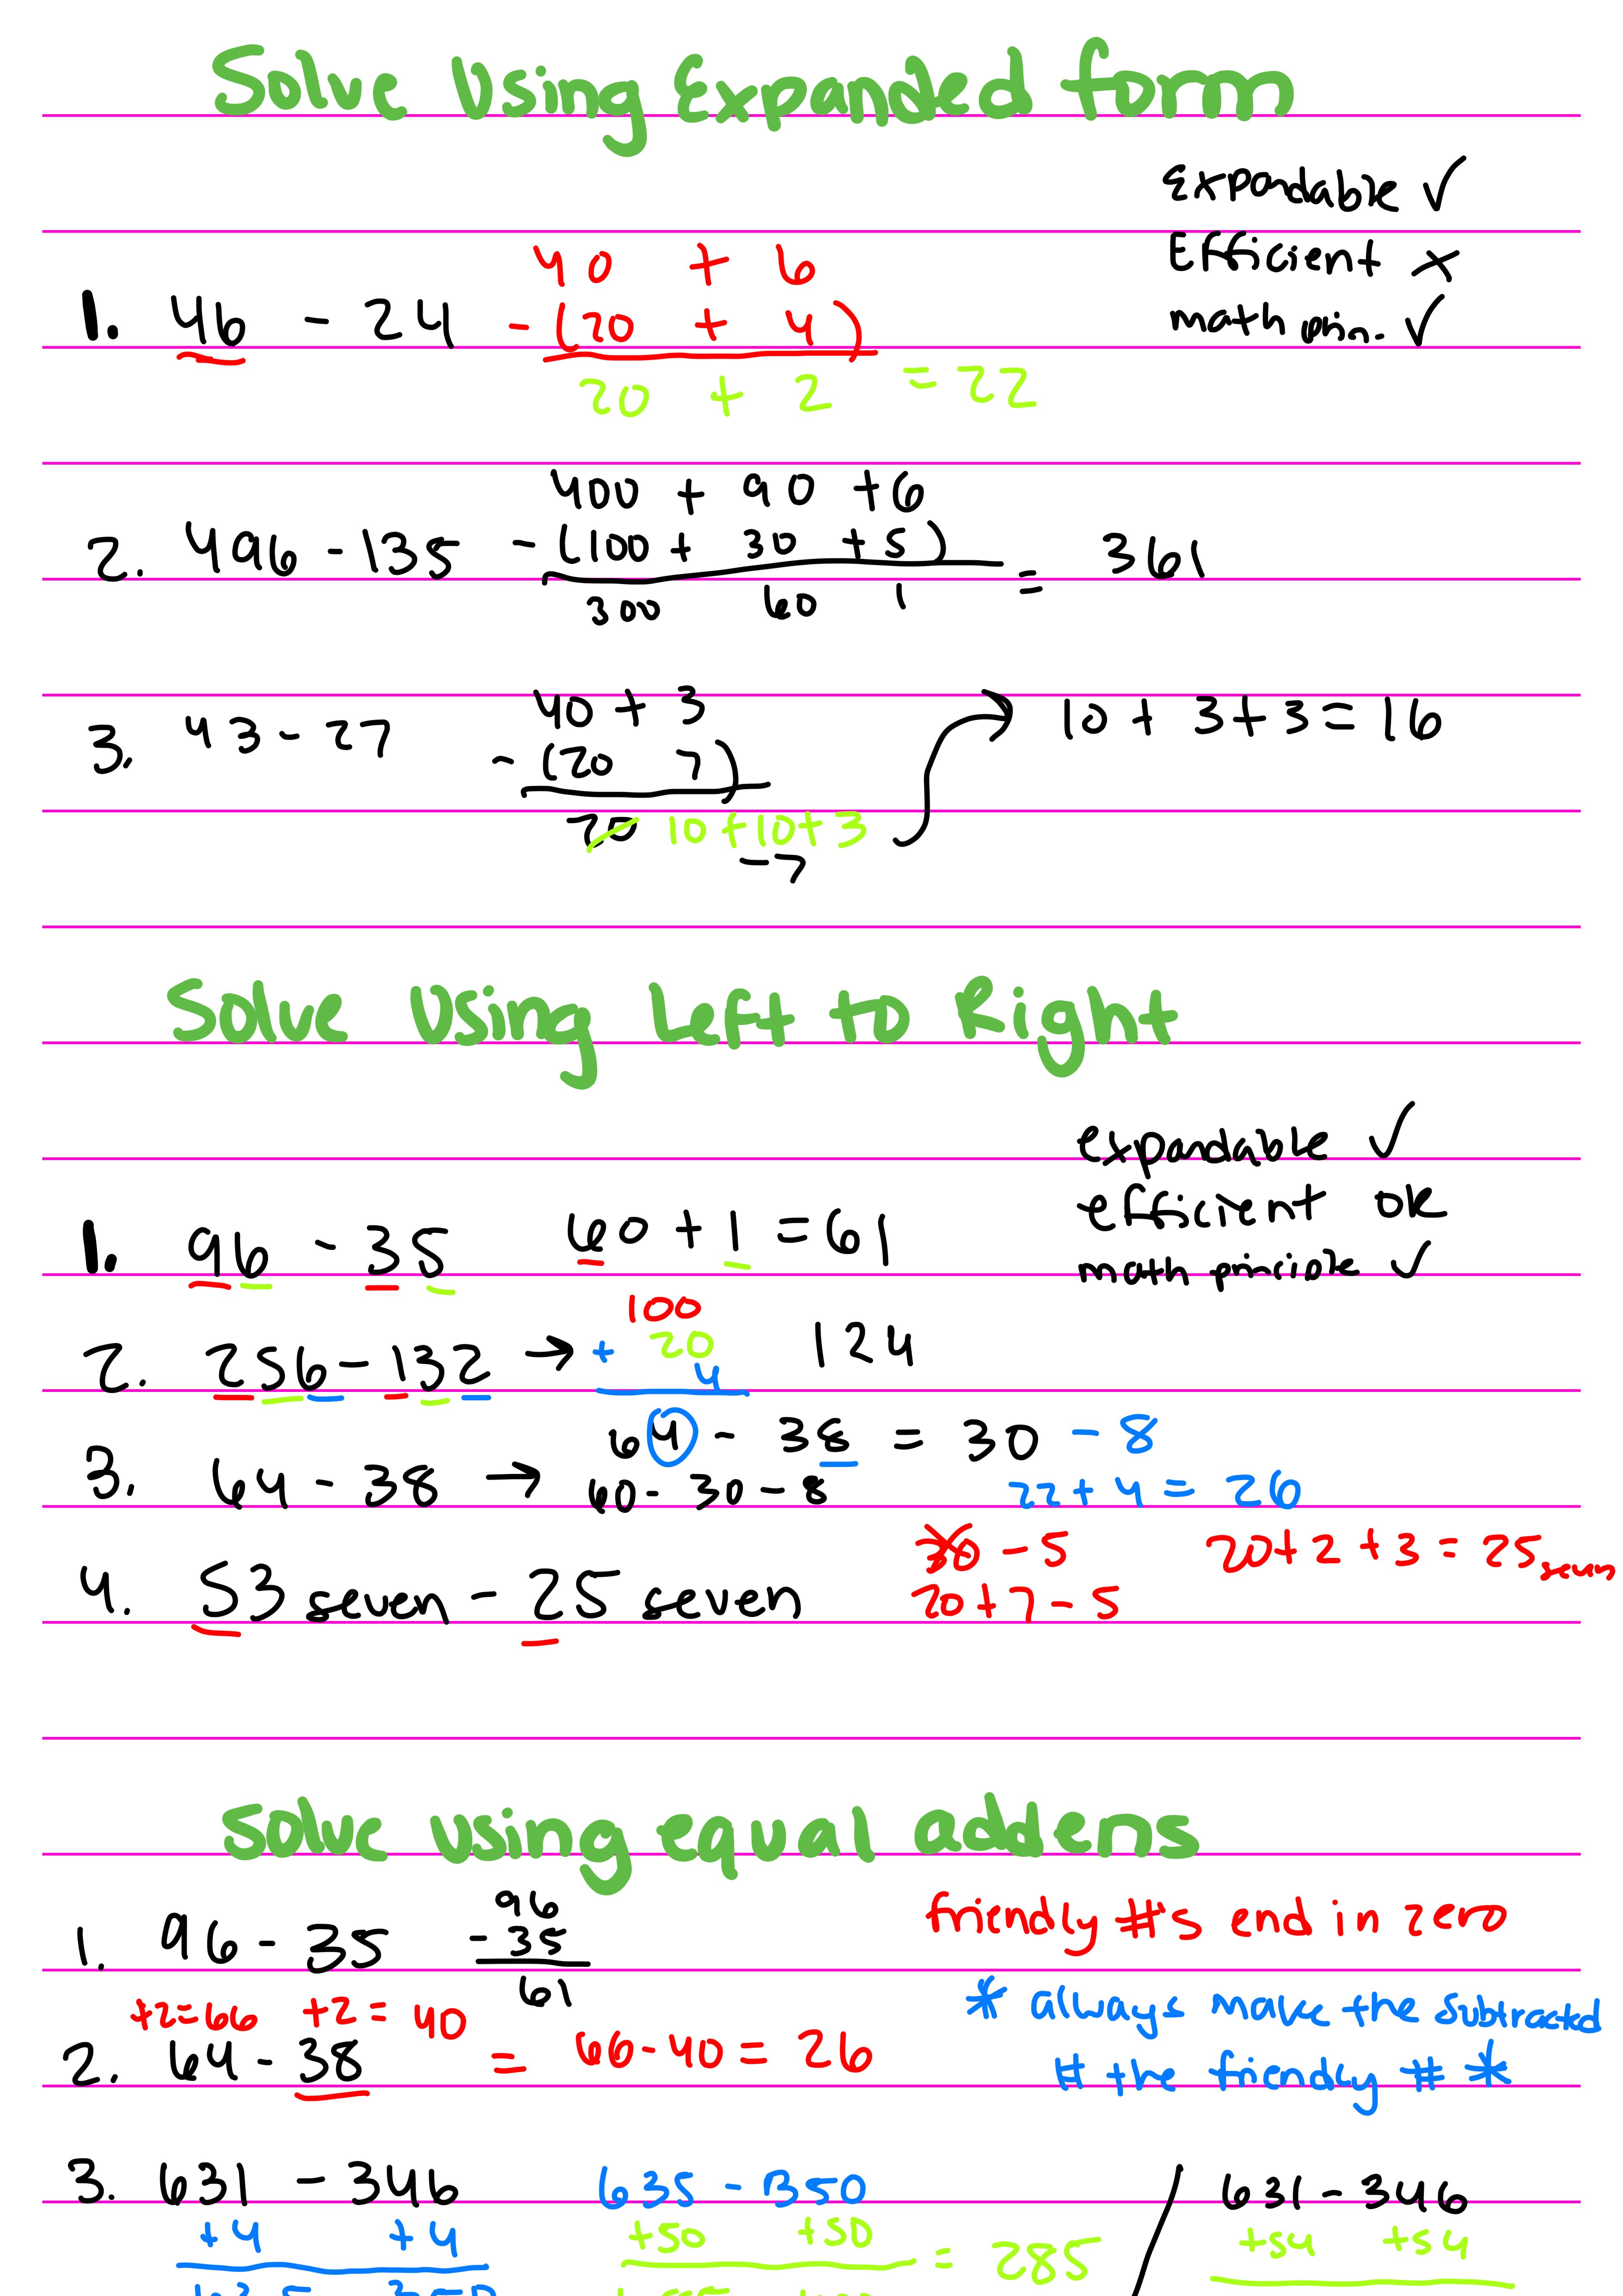 Solve Using Expanded form
Expandable ✓
Efficient ×
math prin. ✓
40 + 6
1. 46 - 24 - (20 + 4)
20 + 2 = 22
400 + 90 + 6
2. 496 - 135 - (100 + 30 + 5) = 361
300 60 1
3. 43 - 27 40 + 3
- (20 7)
20 10 + 10 + 3
- 7
10 + 3 + 3 = 16
Solve Using Left to Right
expandable ✓
efficient ok
math principle ✓
1. 96 - 35 60 + 1 = 61
2. 256 - 132 → 100
+ 20 124
4
3. 64 - 38 → 64 - 38 = 30 - 8
60 - 30 - 8 22 + 4 = 26
4. 53 seven - 25 seven 30 - 5 20 + 2 + 3 = 25 seven
20 + 7 - 5
Solve using equal addens
1. 96 - 35 96
- 35
61
friendly #'s end in zero
* always make the subtracted
# the friendly # *
+2=66 +2= 40
2. 64 - 38 = 66 - 40 = 26
3. 631 - 346 635 - 350 / 631 - 346
+4 +4 +50 +50 = 285 +54 +54